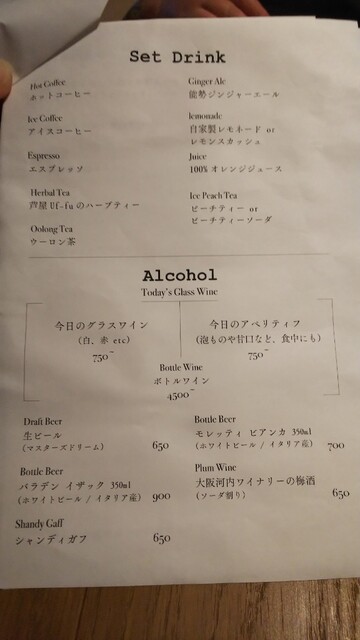 Set Drink
Hot Coffee
ホットコーヒー
Ice Coffee
アイスコーヒー
Espresso
エスプレッソ
Herbal Tea
芦屋 Uf-fu のハーブティー
Oolong Tea
ウーロン茶
Ginger Ale
能勢ジンジャーエール
lemonade
自家製レモネード or
レモンスカッシュ
Juice
100% オレンジジュース
Ice Peach Tea
ピーチティー or
ピーチティーソーダ
Alcohol
Today's Glass Wine
今日のグラスワイン
(白、赤 etc)
750~
今日のアペリティフ
(泡ものや甘口など、食中にも)
750~
Bottle Wine
ボトルワイン
4500~
Draft Beer
生ビール
(マスターズドリーム) 650
Bottle Beer
バラデン イザック 350ml
(ホワイトビール / イタリア産) 900
Shandy Gaff
シャンディガフ 650
Bottle Beer
モレッティ ビアンカ 350ml
(ホワイトビール / イタリア産) 700
Plum Wine
大阪河内ワイナリーの梅酒
(ソーダ割り) 650